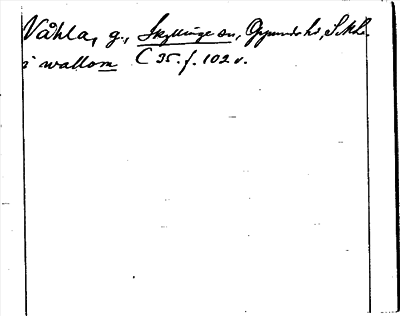 Våhla, g., Skyllinge sn, Oppunda hd, S M L.
i wallom C 35. f. 102 v.